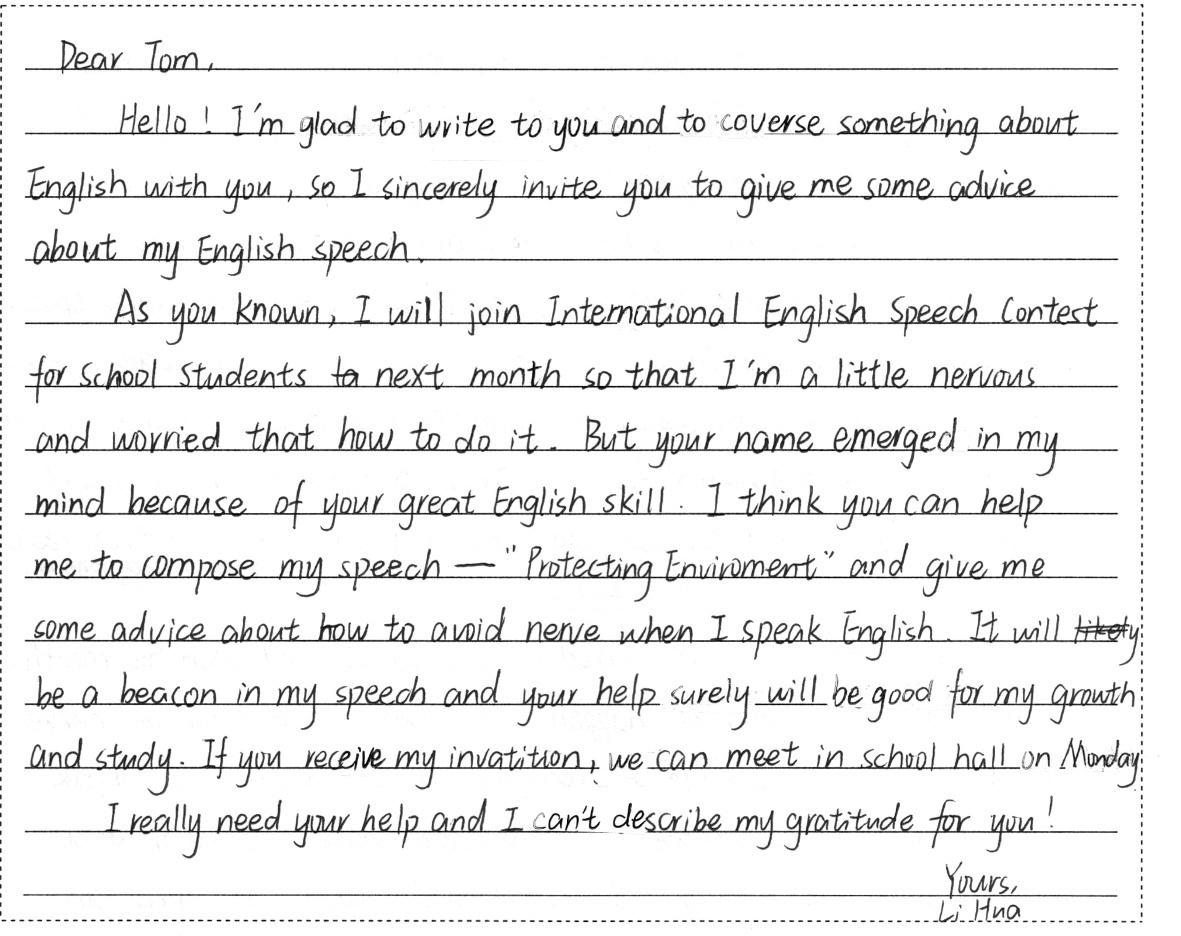 Dear Tom,
Hello! I'm glad to write to you and to coverse something about
English with you, so I sincerely invite you to give me some advice
about my English speech.
As you known, I will join International English Speech Contest
for School Students to next month so that I'm a little nervous
and worried that how to do it. But your name emerged in my
mind because of your great English skill. I think you can help
me to compose my speech — "Protecting Enviroment" and give me
some advice about how to avoid nerve when I speak English. It will likely
be a beacon in my speech and your help surely will be good for my growth
and study. If you receive my invatition, we can meet in school hall on Monday.
I really need your help and I can't describe my gratitude for you!
Yours,
Li Hua